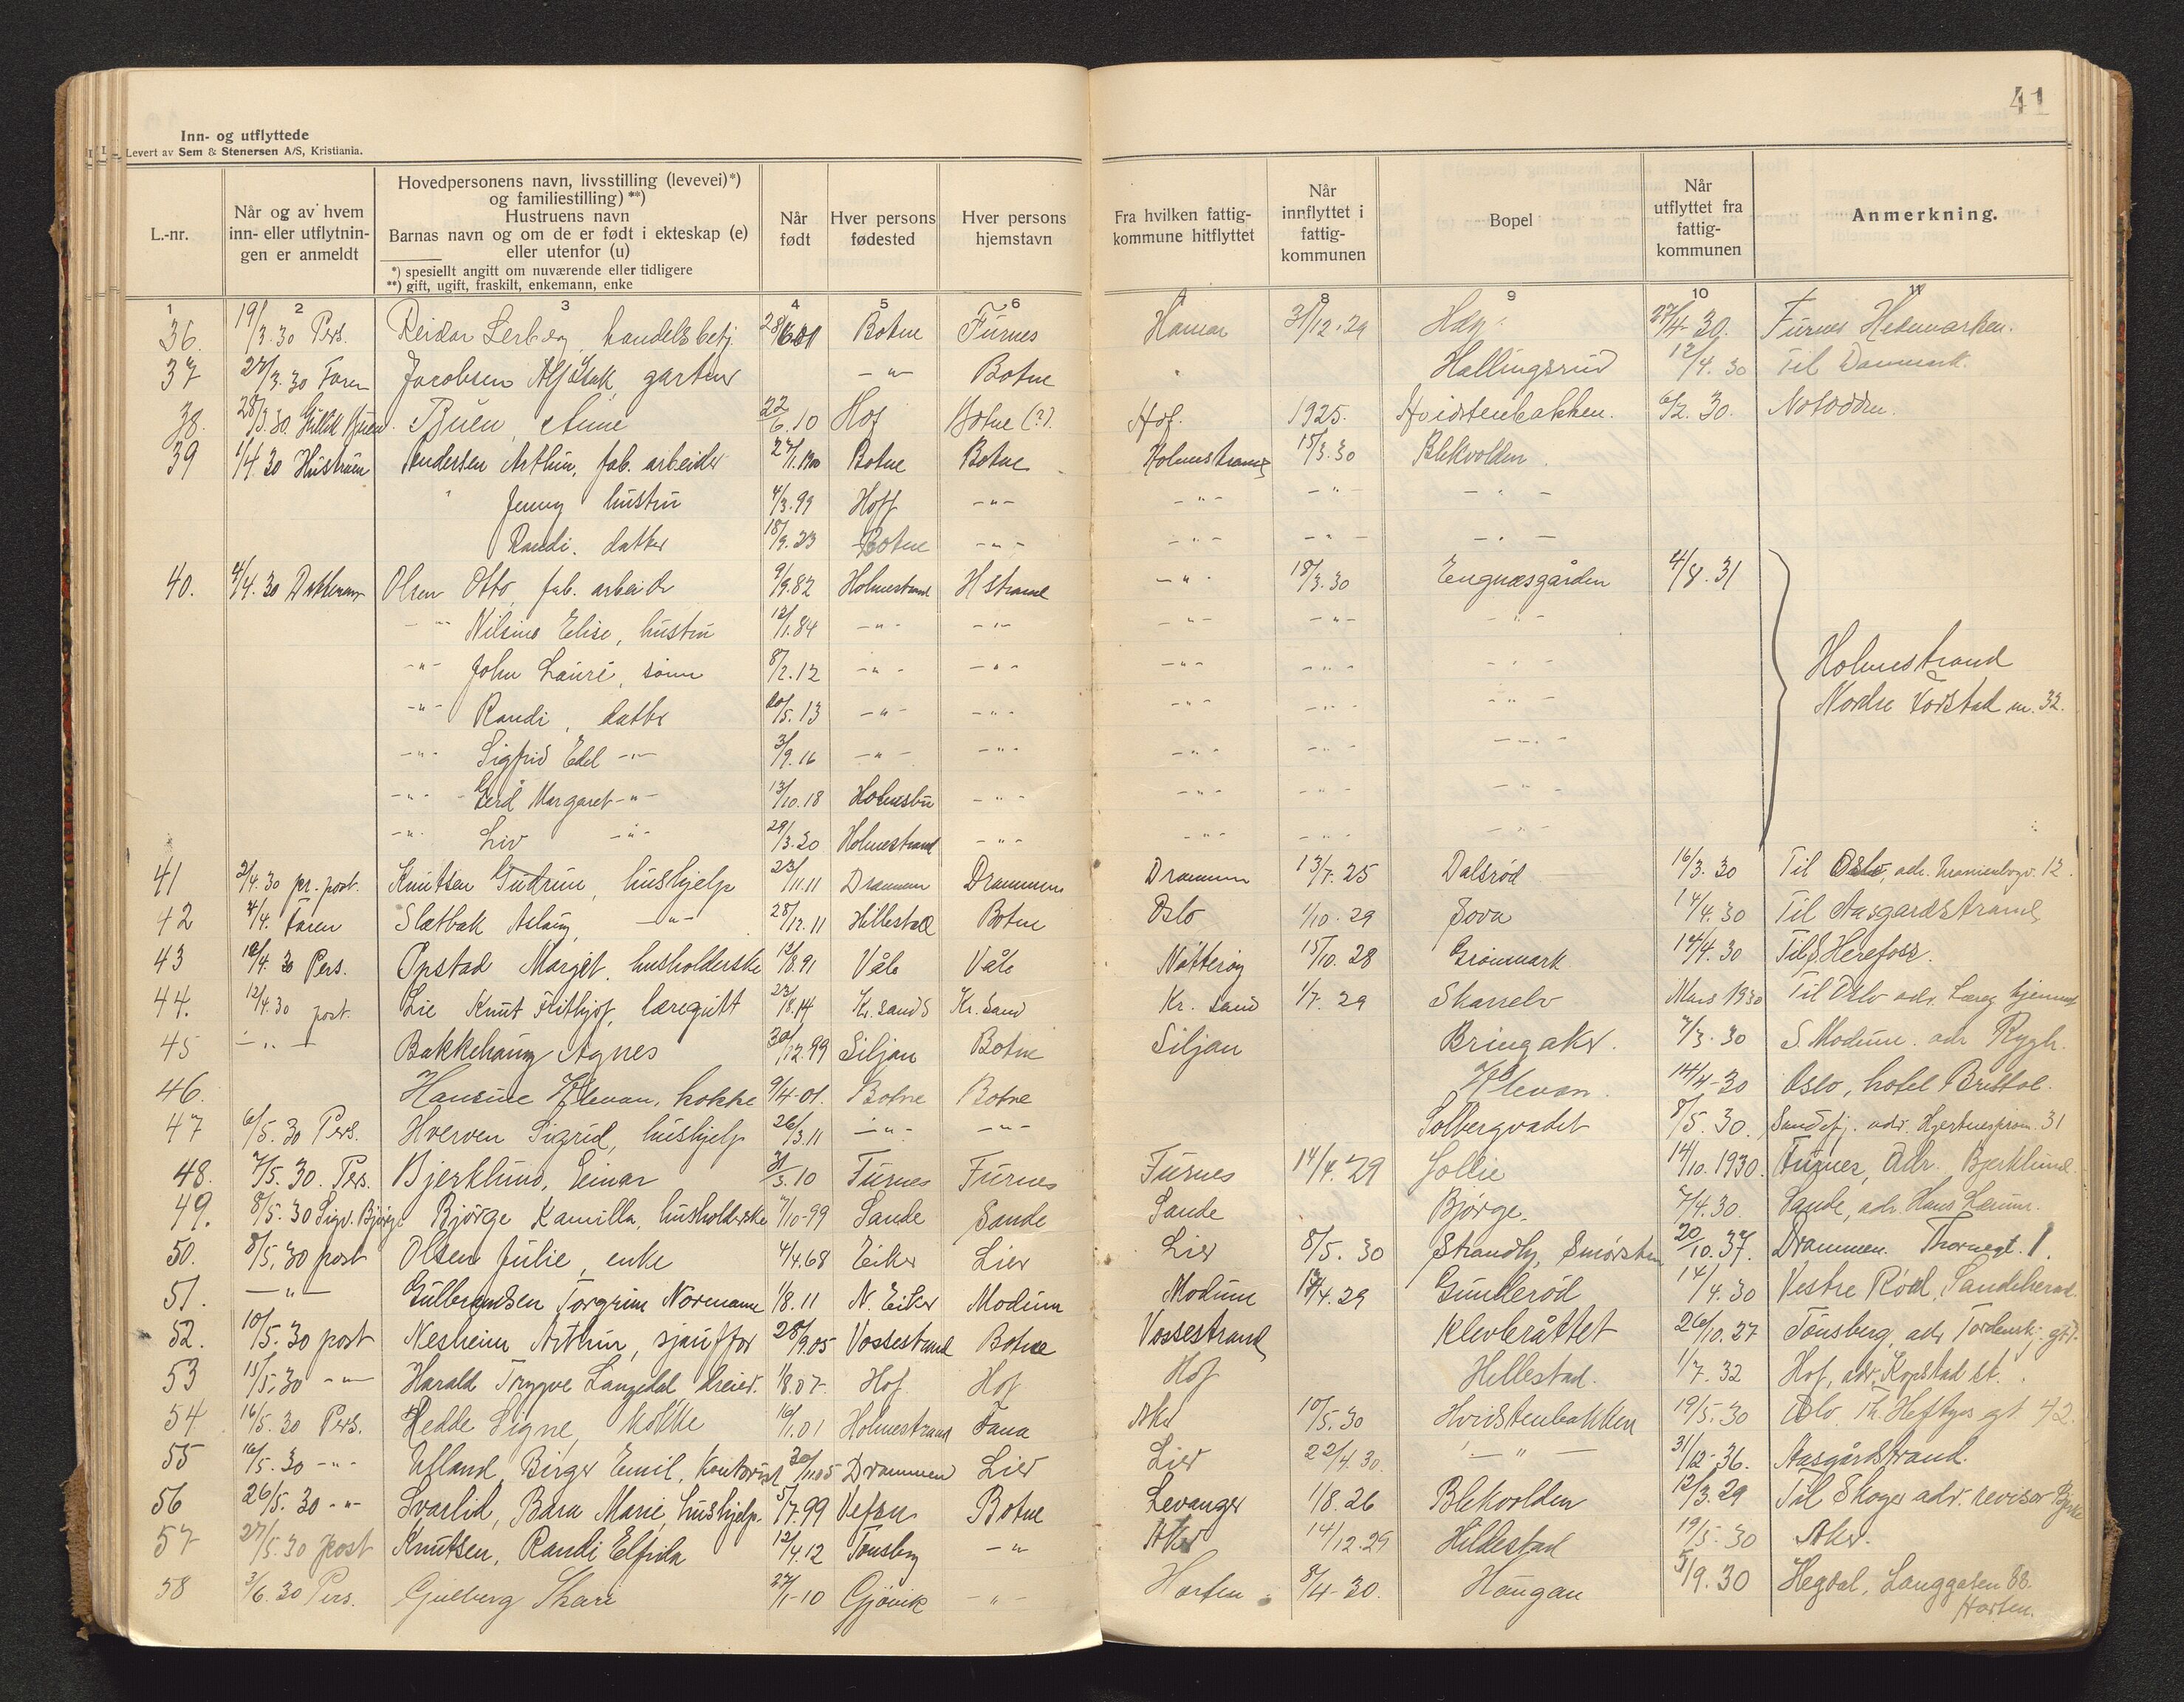 41
Inn- og utflyttede
Levert av Sem & Stenersen A/S, Kristiania.
L.-nr. | Når og av hvem inn- eller utflytnin-gen er anmeldt | Hovedpersonens navn, livsstilling (levevei)*) og familiestilling)**) Hustruens navn Barnas navn og om de er født i ekteskap (e) eller utenfor (u) *) spesiellt angitt om nuværende eller tidligere **) gift, ugift, fraskilt, enkemann, enke | Når født | Hver persons fødested | Hver persons hjemstavn | Fra hvilken fattig-kommune hitflyttet | Når innflyttet i fattig-kommunen | Bopel | Når utflyttet fra fattig-kommunen | Anmerkning.
1 2 3 4 5 6 8 9 10 11
36. 19/3.30 Pers. Reidar Lerberg, handelsbetj. 28/6.01 Botne Furnes Hamar 31/12.29 27/4-30. Furnes Hedmarken.
37 27/3.30 Faren Jacobsen gartner -"- Botne Hallingsrud 12/4.30 Til Danmark.
38. 28/3.30. Buen, Anne 22/6.10 Hof Botne (?). Hof. 1925. Hvidstenbakken. 6/2.30. Notodden.
39 1/4.30 Hustruen Andersen Arthur, fab. arbeider 27/1.1900 Botne Botne Holmestrand 15/3.30 Blekvolden
" Jenny hustru 4/3.99 Hoff -"- -"- -"- -"-
Randi. datter 18/9.23 Botne -"- -"- -"- -"-
40. 4/4.30 Datteren Olsen Otto, fab. arbeider 9/9.82 Holmestrand H Strand -"- 18/3.30 Engnæsgården 4/8.31
-"- Nilsine Elise, hustru 12/1.84 -"- -"- -"- -"- -"-
-"- John Lauri, sønn 8/2.12 -"- -"- -"- -"- -"- Holmestrand
-"- Randi, datter 20/5.13 -"- -"- -"- -"- -"- Nordre Forstad nr. 32.
-"- Sigfrid Edel -"- 3/9.16 -"- -"- -"- -"- -"-
-"- Gerd Margaret -"- 13/10.18 Holmsbu -"- -"- -"- -"-
-"- Liv -"- 29/3.20 Holmestrand -"- -"- -"- -"-
41 2/4.30 pr. post. Knutsen Gudrun, hushjelp 23/11.11 Drammen Drammen Drammen 13/7.25 Dalsrød 16/3.30 Til Oslo, adr. Uranienborgv. 12.
42 4/4. Faren Slætbak Aslaug, -"- 28/12.11 Hillestad Botne Oslo 1/10.29 Sova 14/4.30 Til Aasgardstrand
43 10/4.30 Pers. Opstad Margit, husholderske 12/8.91 Våle Våle Nøtterøy 15/10.28 Grønmark 14/4.30 Til Herefoss.
44. 12/4.30 post. Lie Knut Frithjof, læregutt 23/8.14 Kr. Sand S Kr. Sand Kr. Sand 1/7.29 Skarrelv Mars 1930 Til Oslo adr.
45 -"- Bakkehaug Agnes 30/12.99 Siljan Botne Siljan Bringaker. 7/3.30 S. Modum. adr Rygh.
46. Hansine Klevan, kokke 9/4-01. Botne Botne Klevan. 14/4-30 Oslo, hotel Bristol.
47 6/5.30 Pers. Hverven Sigrid, hushjelp 26/3.11 -"- -"- Solbergvadet 8/5.30. Sandefj. adr. Hjertnesprom. 31
48. 7/5.30. Pers. Bjerklund, Einar 31/3.10 Furnes Furnes Furnes 14/4.29 Jollie 14/10.1930. Furnes, Adr. Bjerklund.
49. 8/5.30 Sigv. Bjørge Bjørge Kamilla, husholderske 7/10-99 Sande Sande Sande Bjørge. 7/4.30. Sande, adr. Hans Lærum.
50. 8/5.30 post Olsen Julie, enke 4/4.68 Eiker Lier Lier 8/5.30 Strandly, Smørsten 20/10.37. Drammen. Thornegt. 1.
51. -"- Gulbrandsen Torgrim Normann 1/8.11 N. Eiker Modum Modum 14/4.29 Gunderød 14/4.30 Vestre Rød, Sandeherad.
52. 10/5.30 post Nesheim Arthur, sjauffør 28/9.05 Vossestrand Botne Vossestrand Klevbråttet 26/10.27 Tønsberg, adr Tordenskj. gt.
53 15/5.30 -"- Harald Trygve Langedal dreier. 1/8.07. Hof Hof Hof Hillestad. 1/7.32 Hof, adr. Kopstad st.
54 16/5.30 Pers. Hedde Signe, kokke 16/1.01 Holmestrand Fana Aker 10/5.30 Hvidstenbakken 19/5.30 Oslo, Th. Heftyes gt. 42.
55 16/5.30 -"- Ulland, Birger Emil, Kontorist 20/11.05 Drammen Lier Lier 22/4.30. -"- 31/12-36. Aasgårdstrand.
56 26/5.30 -"- Svarlid, Bara Marie, hushjelp. 5/7.99 Vefsn Botne Levanger 1/8.26 Blekvolden 12/3.29 Til Skoger adr. revisor Bjerke
57 27/5.30 post Knutsen, Randi Elfrida 12/4.12 Tønsberg -"- Aker 14/12.29 Hildestad 19/5.30 Aker.
58 3/6.30 Pers. Gjelberg Skari 27/1-10 Gjøvik -"- Horten 8/4-30. Haugan 5/9.30 Hegdal, Langgaten 88.
Horten.